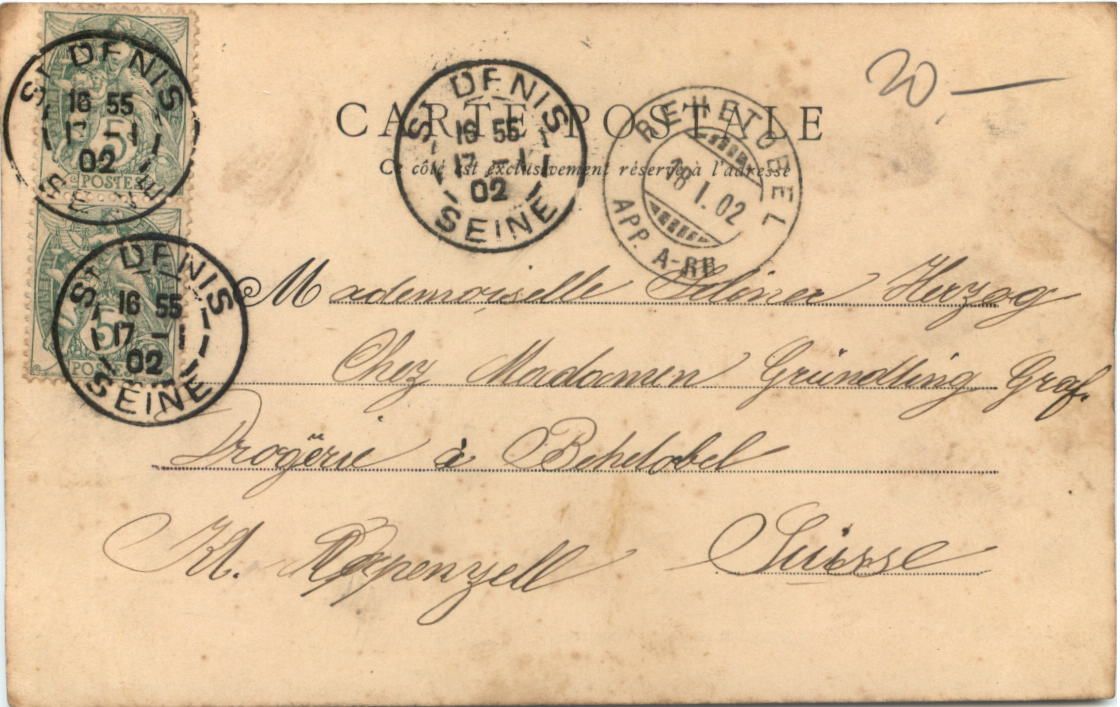 CARTE POSTALE
Ce côté est exclusivement réservé à l'adresse
20.—
ST DENIS
16 55
17 -1
02
SEINE
5
POSTES
ST DENIS
16 55
17 -1
02
SEINE
5
POSTES
ST DENIS
16 55
17 -1
02
SEINE
REHETOBEL
18.I.02
APP. A-RH
Mademoiselle Herzog
Chez Madamen Gründling Graf.
Drogërie à Rehetobel
Kt. Appenzell Suisse